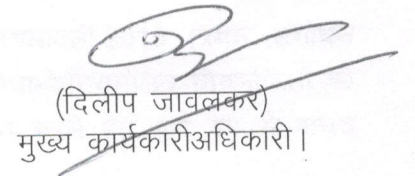 (दिलीप जावलकर)
मुख्य कार्यकारीअधिकारी।